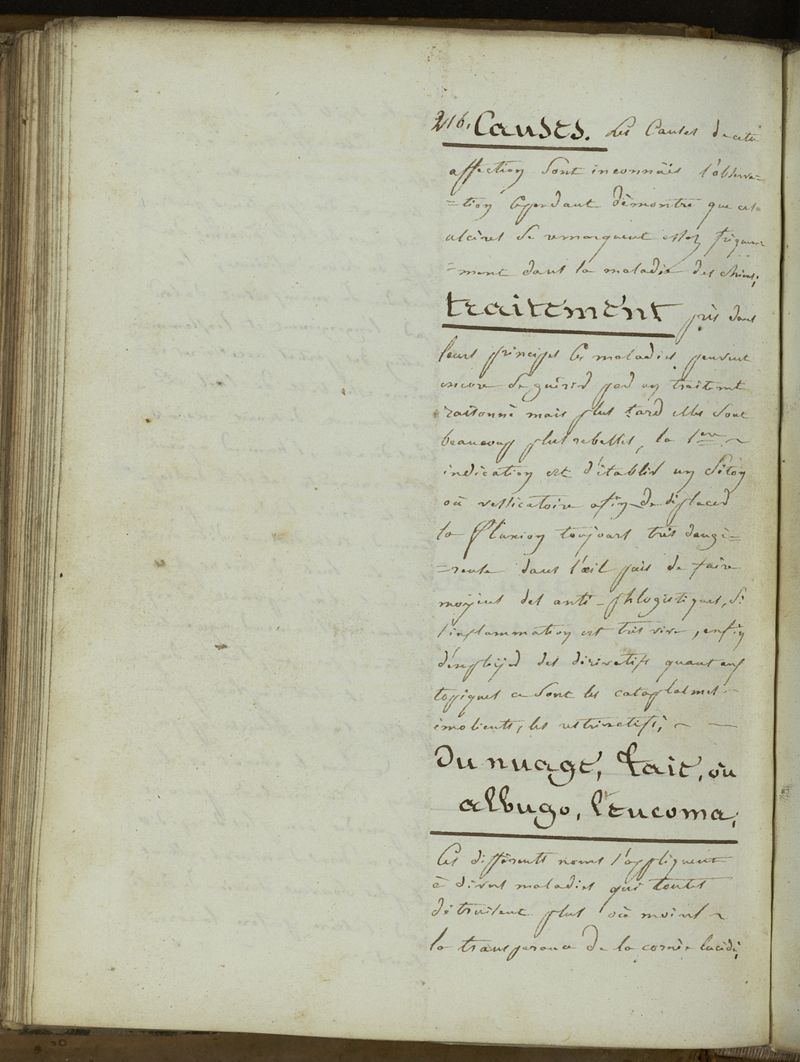 216. Causes. Les Causes de cette
affection sont inconnües l'observa=
=tion cependant démontre que ces
ulcères se remarquent assez fréquem
=ment dans la maladie des chiens;
traitement pris dans
leurs principes les maladies peuvent
encore se guérir par un traitemt
raisonné mais plus tard elles sont
beaucoup plus rebelles, la 1ere ~
indication est d'établir un séton
où vessicatoire afin de displacer
la fluxion toujours très dange=
=reuse dans l'œil puis de faire
moyens des anti-phlogistiques, si
l'inflammation est très vive, enfin
d'employer des dérivatifs quant aux
topiques ce sont les cataplasmes
imolients, les restrinctifs, ~ —
Du nuage, taie, où
albugo, leucoma,
Ces différents noms s'appliquent
à divers maladies qui toutes
détruisent plus où moins ~
la transparence de la cornée lucide,